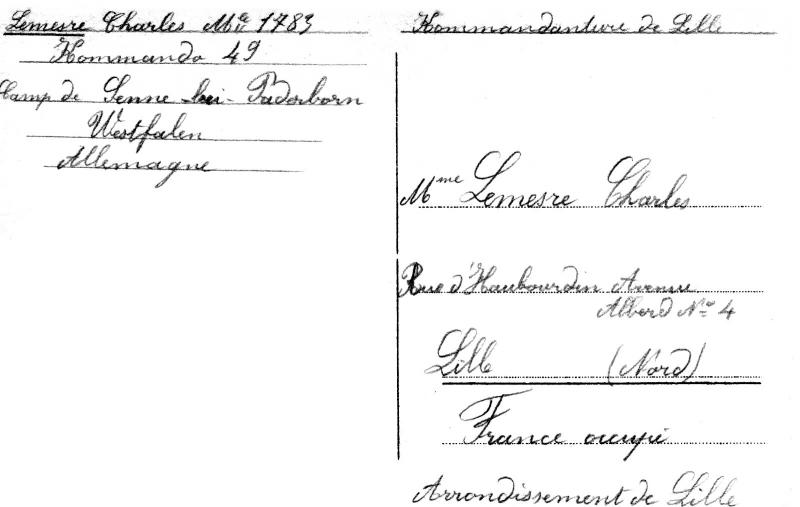 Lemesre Charles Mle 1783
Kommando 49
Camp de Senne bei-Paderborn
Westfalen
Allemagne
Kommandanture de Lille
Mme Lemesre Charles
Rue d'Haubourdin Avenue
Alberd No 4
Lille (Nord)
France occupé
Arrondissement de Lille